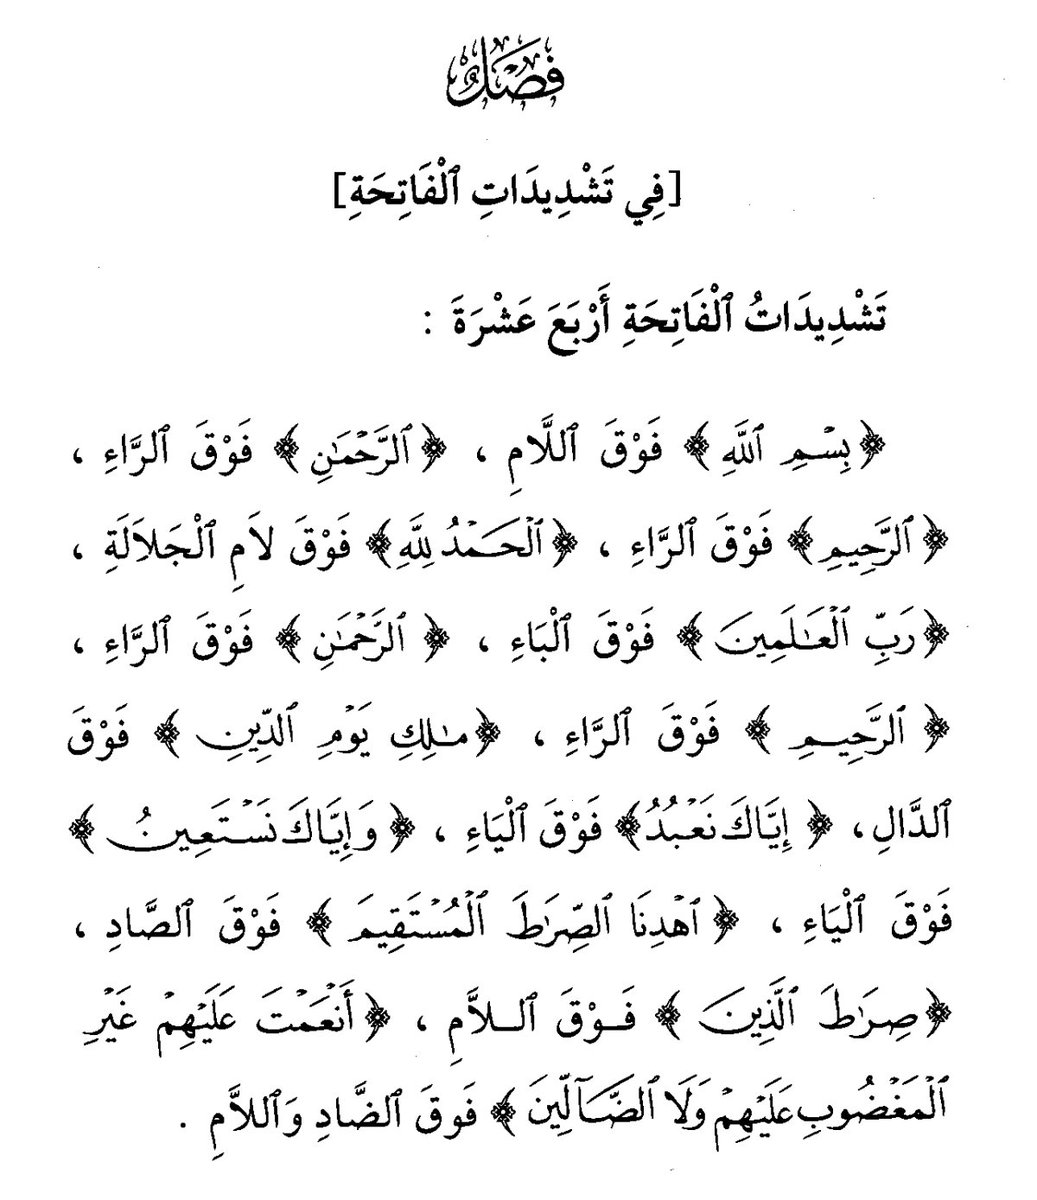 فَصْلٌ
[فِي تَشْدِيدَاتِ ٱلْفَاتِحَةِ]
تَشْدِيدَاتُ ٱلْفَاتِحَةِ أَرْبَعَ عَشْرَةَ :
﴿بِسْمِ ٱللَّهِ﴾ فَوْقَ ٱللَّامِ ، ﴿ٱلرَّحْمَـٰنِ﴾ فَوْقَ ٱلرَّاءِ ،
﴿ٱلرَّحِيمِ﴾ فَوْقَ ٱلرَّاءِ ، ﴿ٱلْحَمْدُ لِلَّهِ﴾ فَوْقَ لاَمِ ٱلْجَلاَلَةِ ،
﴿رَبِّ ٱلْعَـٰلَمِينَ﴾ فَوْقَ ٱلْبَاءِ ، ﴿ٱلرَّحْمَـٰنِ﴾ فَوْقَ ٱلرَّاءِ ،
﴿ٱلرَّحِيمِ﴾ فَوْقَ ٱلرَّاءِ ، ﴿مَـٰلِكِ يَوْمِ ٱلدِّينِ﴾ فَوْقَ
ٱلدَّالِ، ﴿إِيَّاكَ نَعْبُدُ﴾ فَوْقَ ٱلْيَاءِ ، ﴿وَإِيَّاكَ نَسْتَعِينُ﴾
فَوْقَ ٱلْيَاءِ ، ﴿ٱهْدِنَا ٱلصِّرَٰطَ ٱلْمُسْتَقِيمَ﴾ فَوْقَ ٱلصَّادِ ،
﴿صِرَٰطَ ٱلَّذِينَ﴾ فَـوْقَ ٱلـلاَّمِ ، ﴿أَنْعَمْتَ عَلَيْهِمْ غَيْرِ
ٱلْمَغْضُوبِ عَلَيْهِمْ وَلَا ٱلضَّآلِّينَ﴾ فَوقَ ٱلضَّادِ وَٱللاَّمِ .